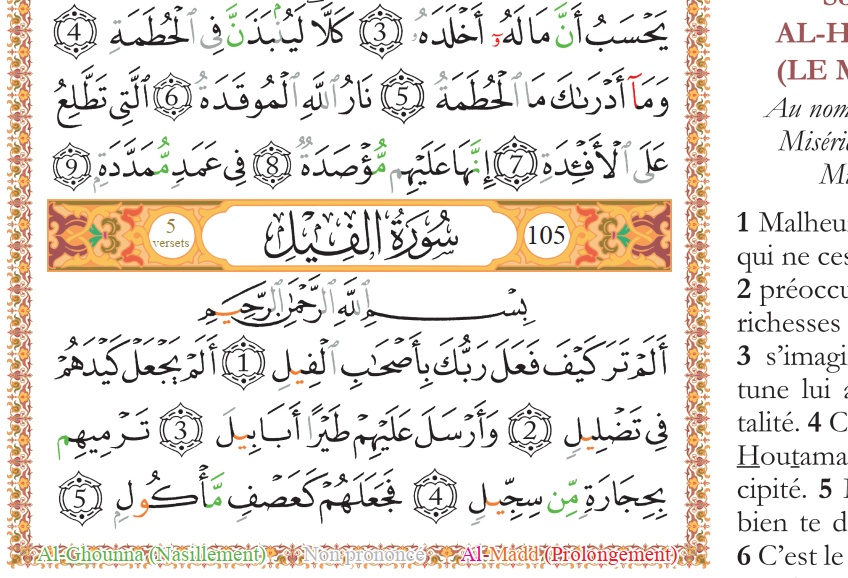 يَحْسَبُ أَنَّ مَالَهُۥٓ أَخْلَدَهُۥ ③ كَلَّا ۖ لَيُنۢبَذَنَّ فِى ٱلْحُطَمَةِ ④
وَمَآ أَدْرَىٰكَ مَا ٱلْحُطَمَةُ ⑤ نَارُ ٱللَّهِ ٱلْمُوقَدَةُ ⑥ ٱلَّتِى تَطَّلِعُ
عَلَى ٱلْأَفْـِٔدَةِ ⑦ إِنَّهَا عَلَيْهِم مُّؤْصَدَةٌ ⑧ فِى عَمَدٍ مُّمَدَّدَةٍۭ ⑨
5 versets سُورَةُ الفِيلِ 105
بِسْمِ ٱللَّهِ ٱلرَّحْمَٰنِ ٱلرَّحِيمِ
أَلَمْ تَرَ كَيْفَ فَعَلَ رَبُّكَ بِأَصْحَٰبِ ٱلْفِيلِ ① أَلَمْ يَجْعَلْ كَيْدَهُمْ
فِى تَضْلِيلٍ ② وَأَرْسَلَ عَلَيْهِمْ طَيْرًا أَبَابِيلَ ③ تَرْمِيهِم
بِحِجَارَةٍ مِّن سِجِّيلٍ ④ فَجَعَلَهُمْ كَعَصْفٍ مَّأْكُولٍۭ ⑤
Al-Ghounna (Nasillement) Non prononcé Al-Madd (Prolongement)
AL-H
(LE M
Au nom
Miséri
1 Malheu
qui ne ces
2 préoccu
richesses
3 s’imagi
tune lui a
talité. 4 C
Houtama
cipité. 5
bien te d
6 C’est le